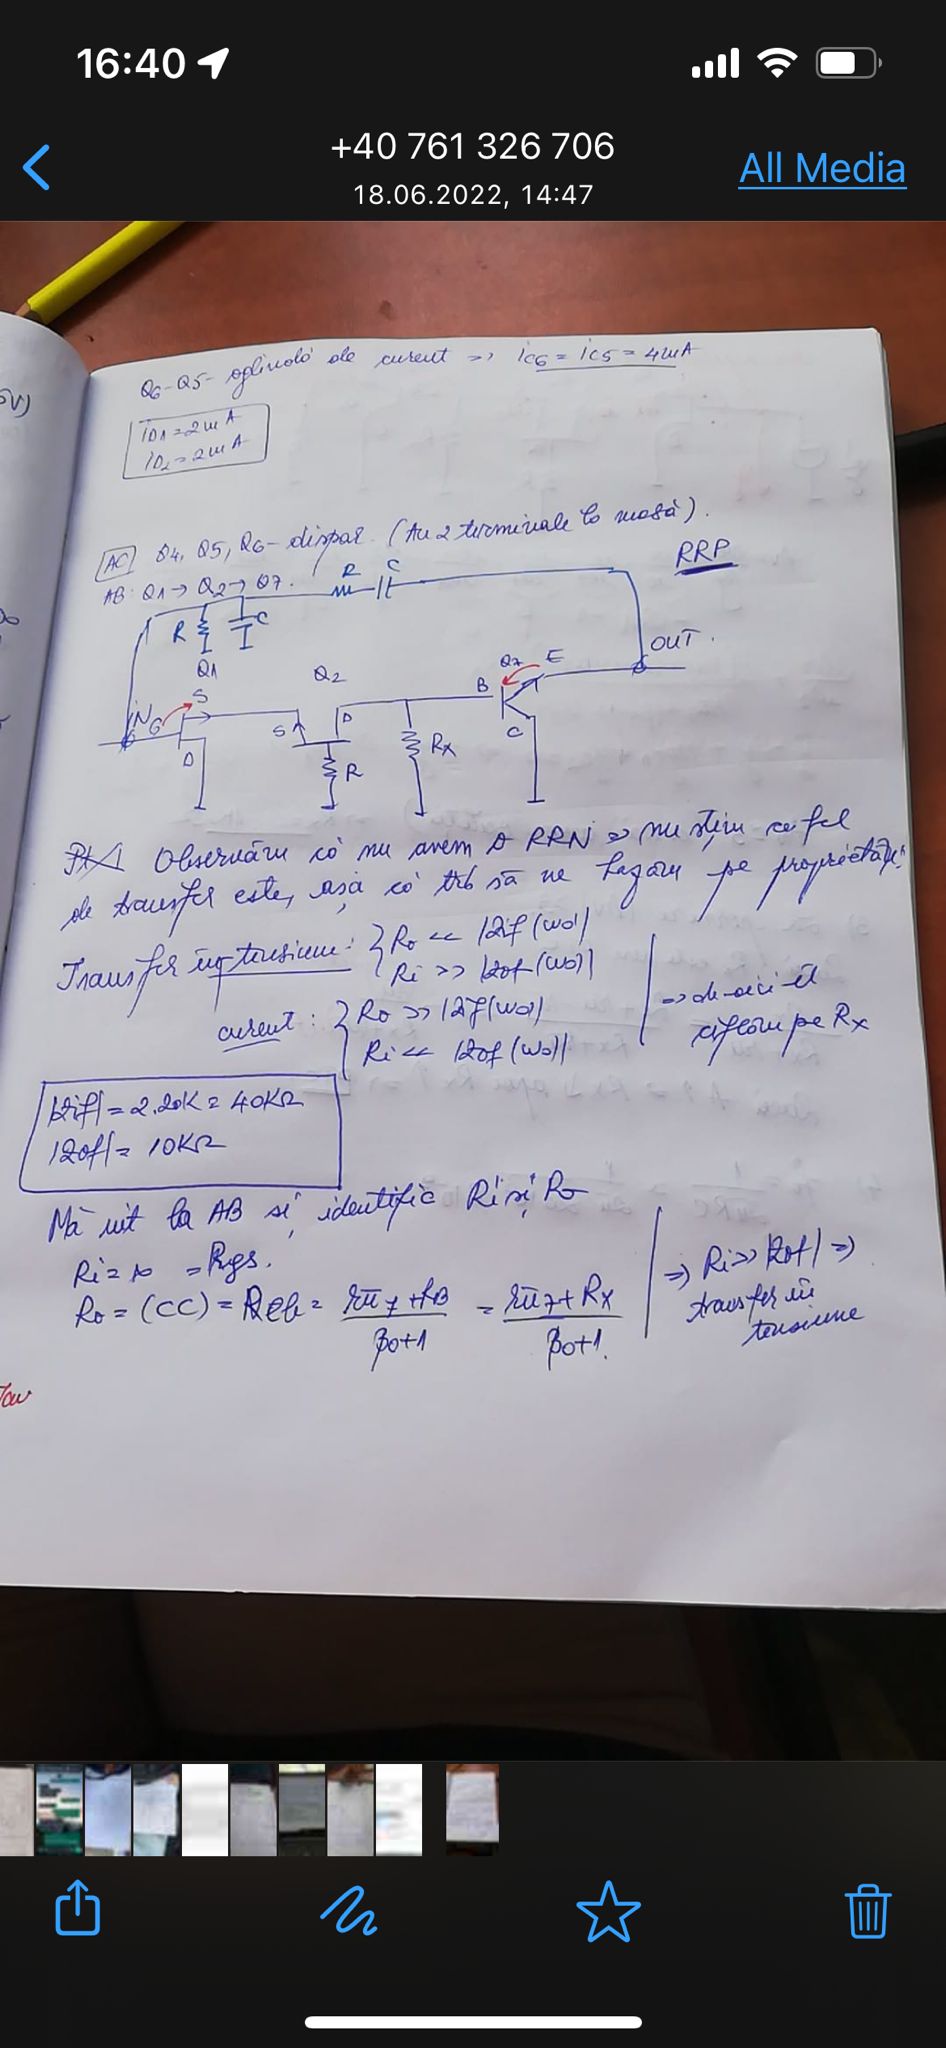 16:40
+40 761 326 706
18.06.2022, 14:47
All Media
Q6-Q5- oglindă de curent => ic6 = ic5 = 4mA
ID1 = 2mA
ID2 = 2mA
AC Q4, Q5, Q6 - dispar. (Au 2 terminale la masă).
AB: Q1 → Q2 → Q7.
R C
RRP
R C
Q1
Q2
Q7 E
OUT.
S
B
iN G
S D
C
D
R
Rx
Observăm că nu avem RRN => nu știm ce fel
de transfer este, așa că trb să ne legăm pe proprietăți
Transfer în tensiune: { Ro << |Zif(ωo)|
Ri >> |Zof(ωo)|
curent: { Ro >> |Zif(ωo)|
Ri << |Zof(ωo)|
=> de-aici îl
aflăm pe Rx
|Zif| = 2.20K = 40KΩ
|Zof| = 10KΩ
Mă uit la AB și identific Ri și Ro
Ri = ∞ = Rgs.
Ro = (CC) = Reb = rπ7+RB / β0+1 = rπ7+Rx / β0+1.
=> Ri >> |Zof| =>
transfer în
tensiune